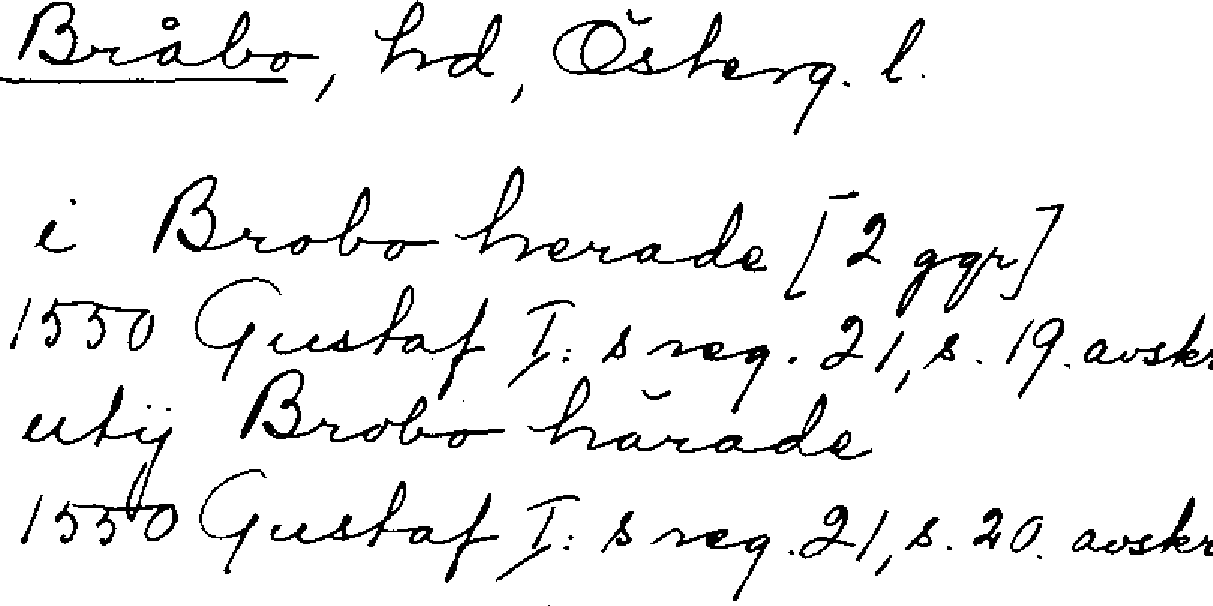 Bråbo, hd, Österg. l.
i Brobo herade [2 ggr]
1550 Gustaf I:s reg. 21, s. 19. avskr
utij Brobo härade
1550 Gustaf I:s reg. 21, s. 20. avskr